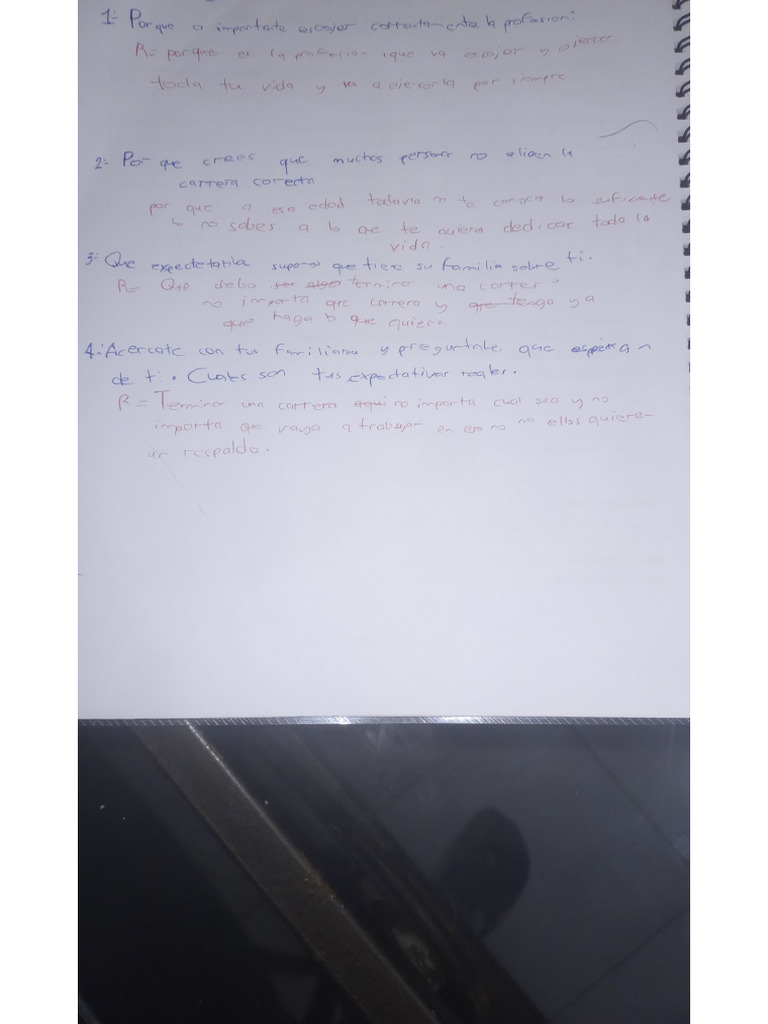 1- Porque es importante escojer correctamente la profesion:
R= porque es la profesion que va escojer y ejercer
toda tu vida y va a ejercerla por siempre
2- Por que crees que muchos personas no eligen la
carrera corecta
por que a esa edad todavia no te conoces lo suficiente
y no sabes a lo que te quieres dedicar toda la
vida.
3- Que expectetativa supones que tiene su familia sobre ti.
R= Que debo ser algo terminar una carrera
no importa que carrera y que tengo ya
que haga lo que quiera.
4- Acercate con tus familiares y preguntale que esperan
de ti. Cuales son tus expectativas reales.
R= Terminar una carrera aqui no importa cual sea y no
importa que vaya a trabajar en eso no no ellos quiere
un respaldo.